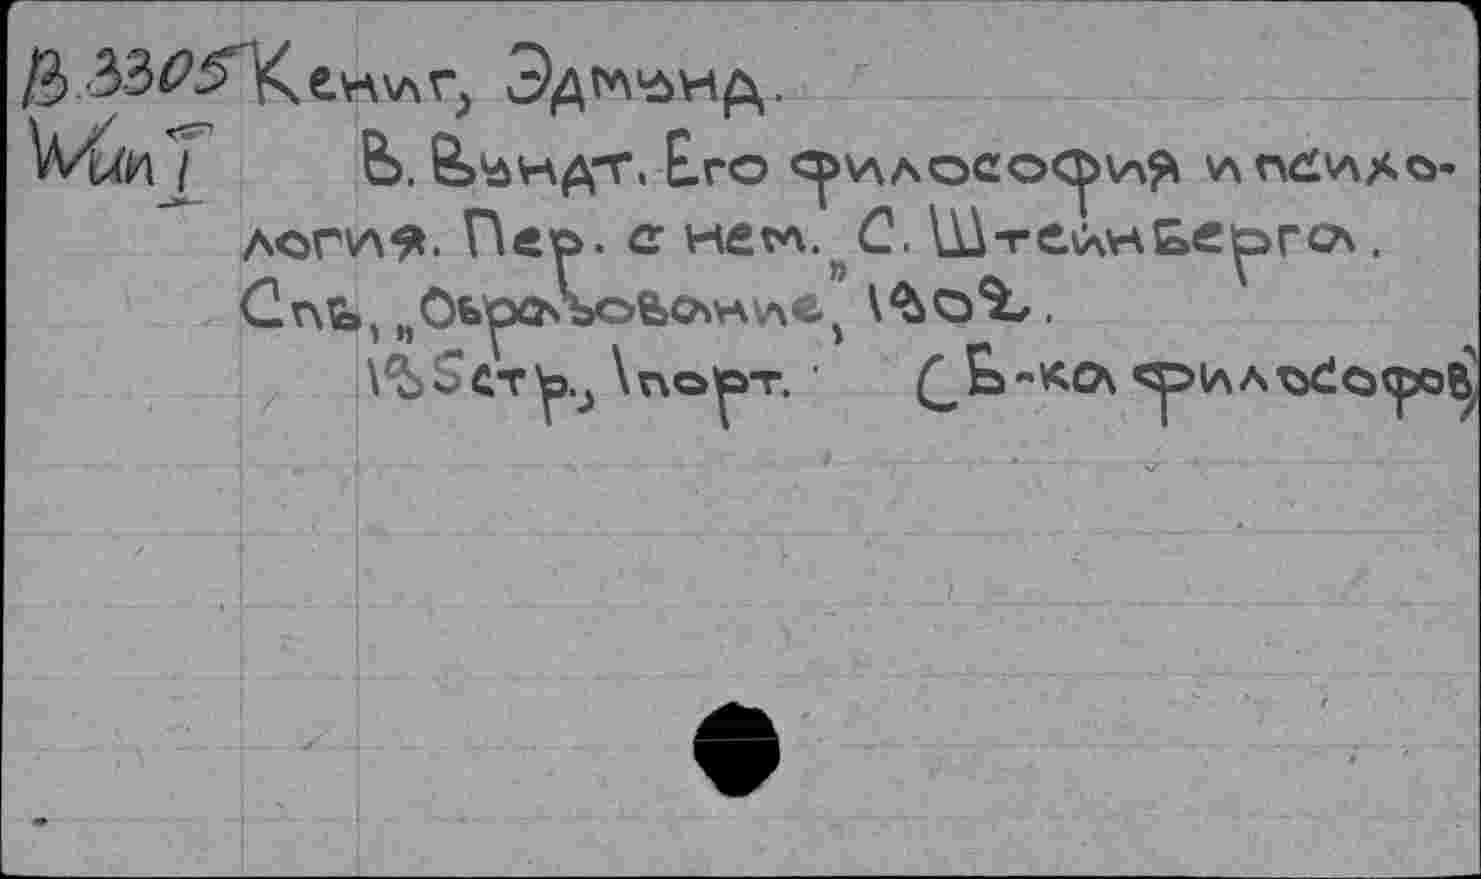 B 3305 Кениг, Эдмунд.
В. Вундт. Его философия и психо-
логия. Пер. с нем. С. Штейнберга.
Спб, „Образование“, 1902.
стр., 1 порт. (Б-ка философов)